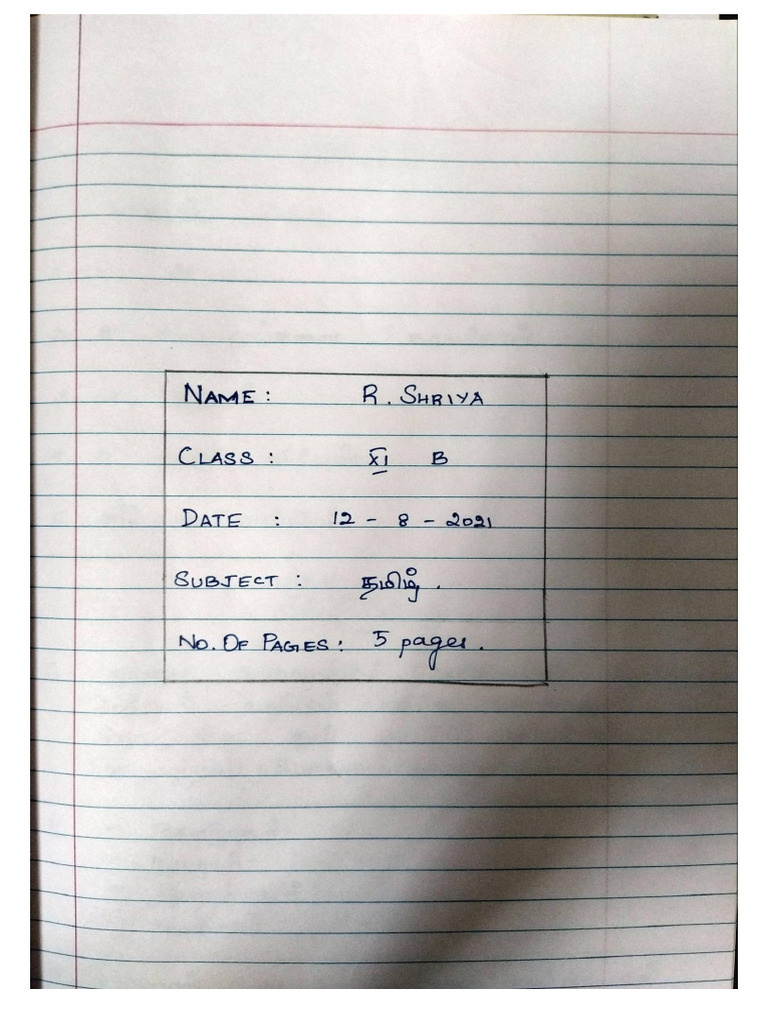 NAME : R. SHRIYA
CLASS : XI B
DATE : 12 - 8 - 2021
SUBJECT : தமிழ் .
NO. OF PAGES : 5 pages.